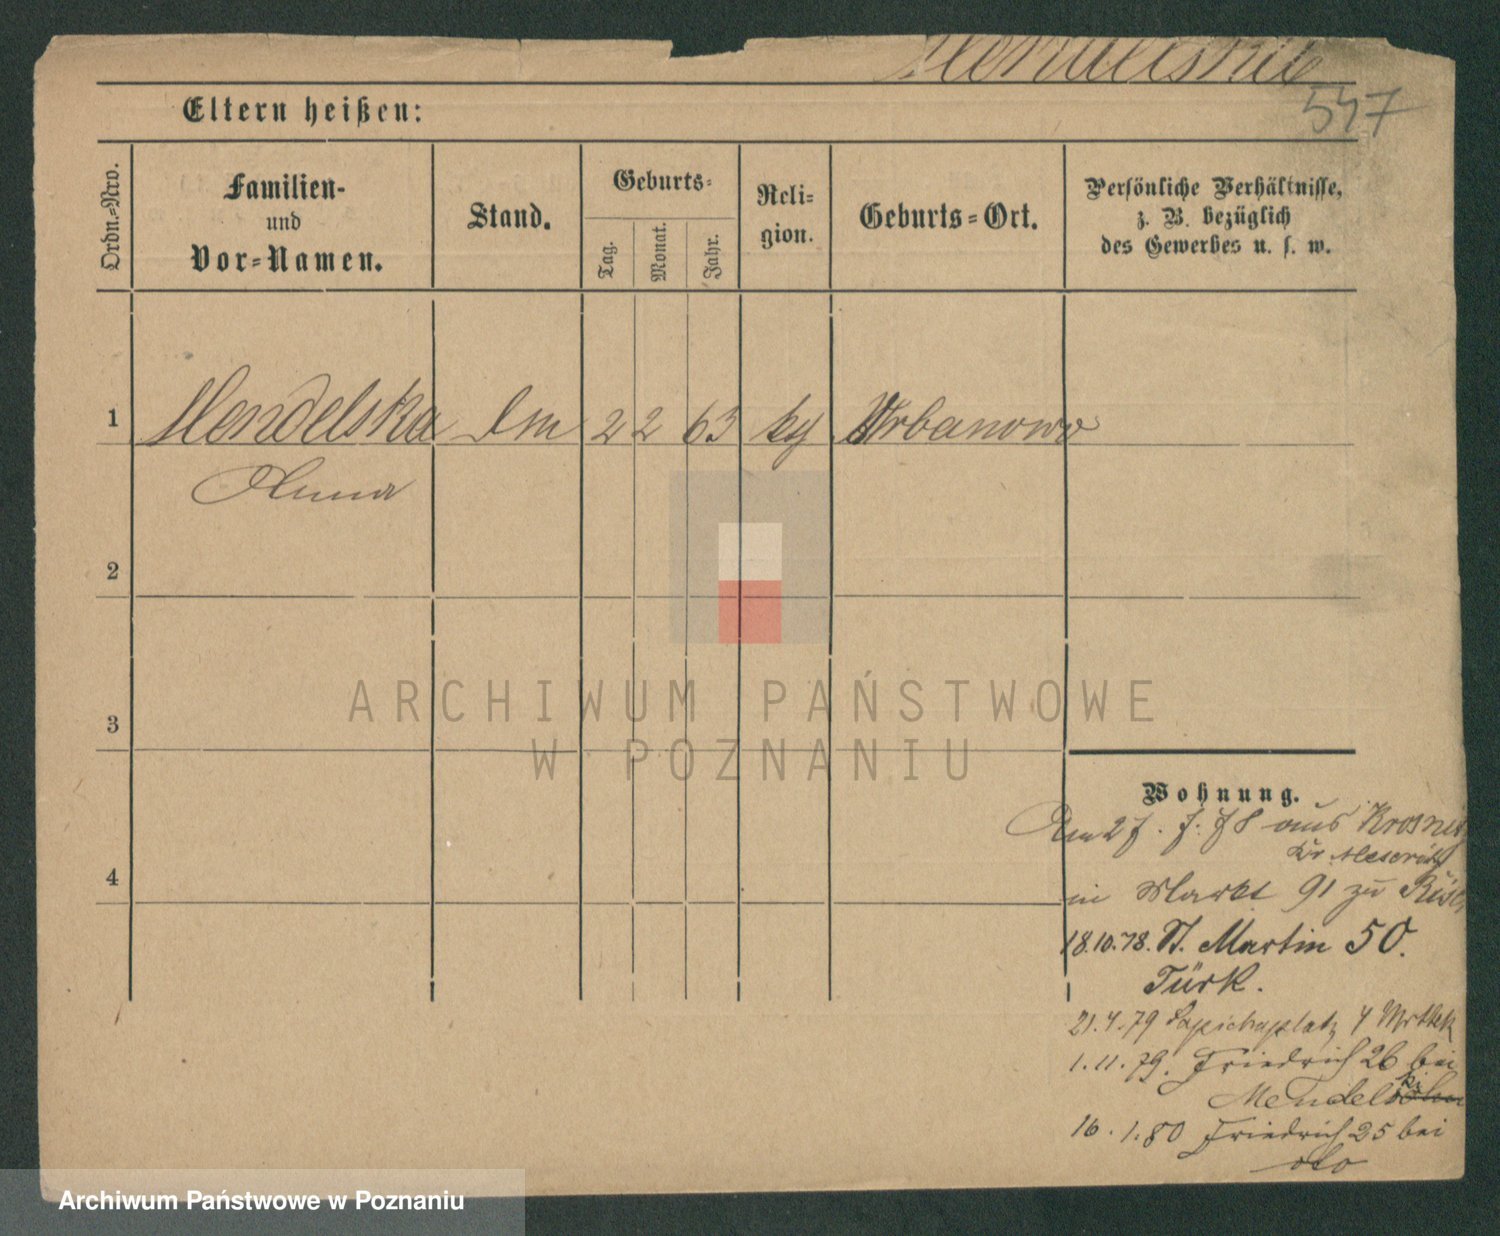 Mendelska
547
Eltern heißen:
Ordn.=Nro.
Familien-
und
Vor=Namen.
Stand.
Geburts=
Tag.
Monat.
Jahr.
Reli=
gion.
Geburts=Ort.
Persönliche Verhältnisse,
z. B. bezüglich
des Gewerbes u. s. w.
1 Mendelska 2 2 63 Urbanowo
Anna
2
3
4
ARCHIWUM PAŃSTWOWE
W POZNANIU
Wohnung.
Am 27. 7. 78 aus
Kr. Meseritz
in Markt 91 zu
18.10.78. St. Martin 50.
Türk.
21.4.79 Sapiehaplatz 4
1.11.79. Friedrich 26 bei
Mendelsohn ki
16.1.80 Friedrich 25 bei
dto
Archiwum Państwowe w Poznaniu